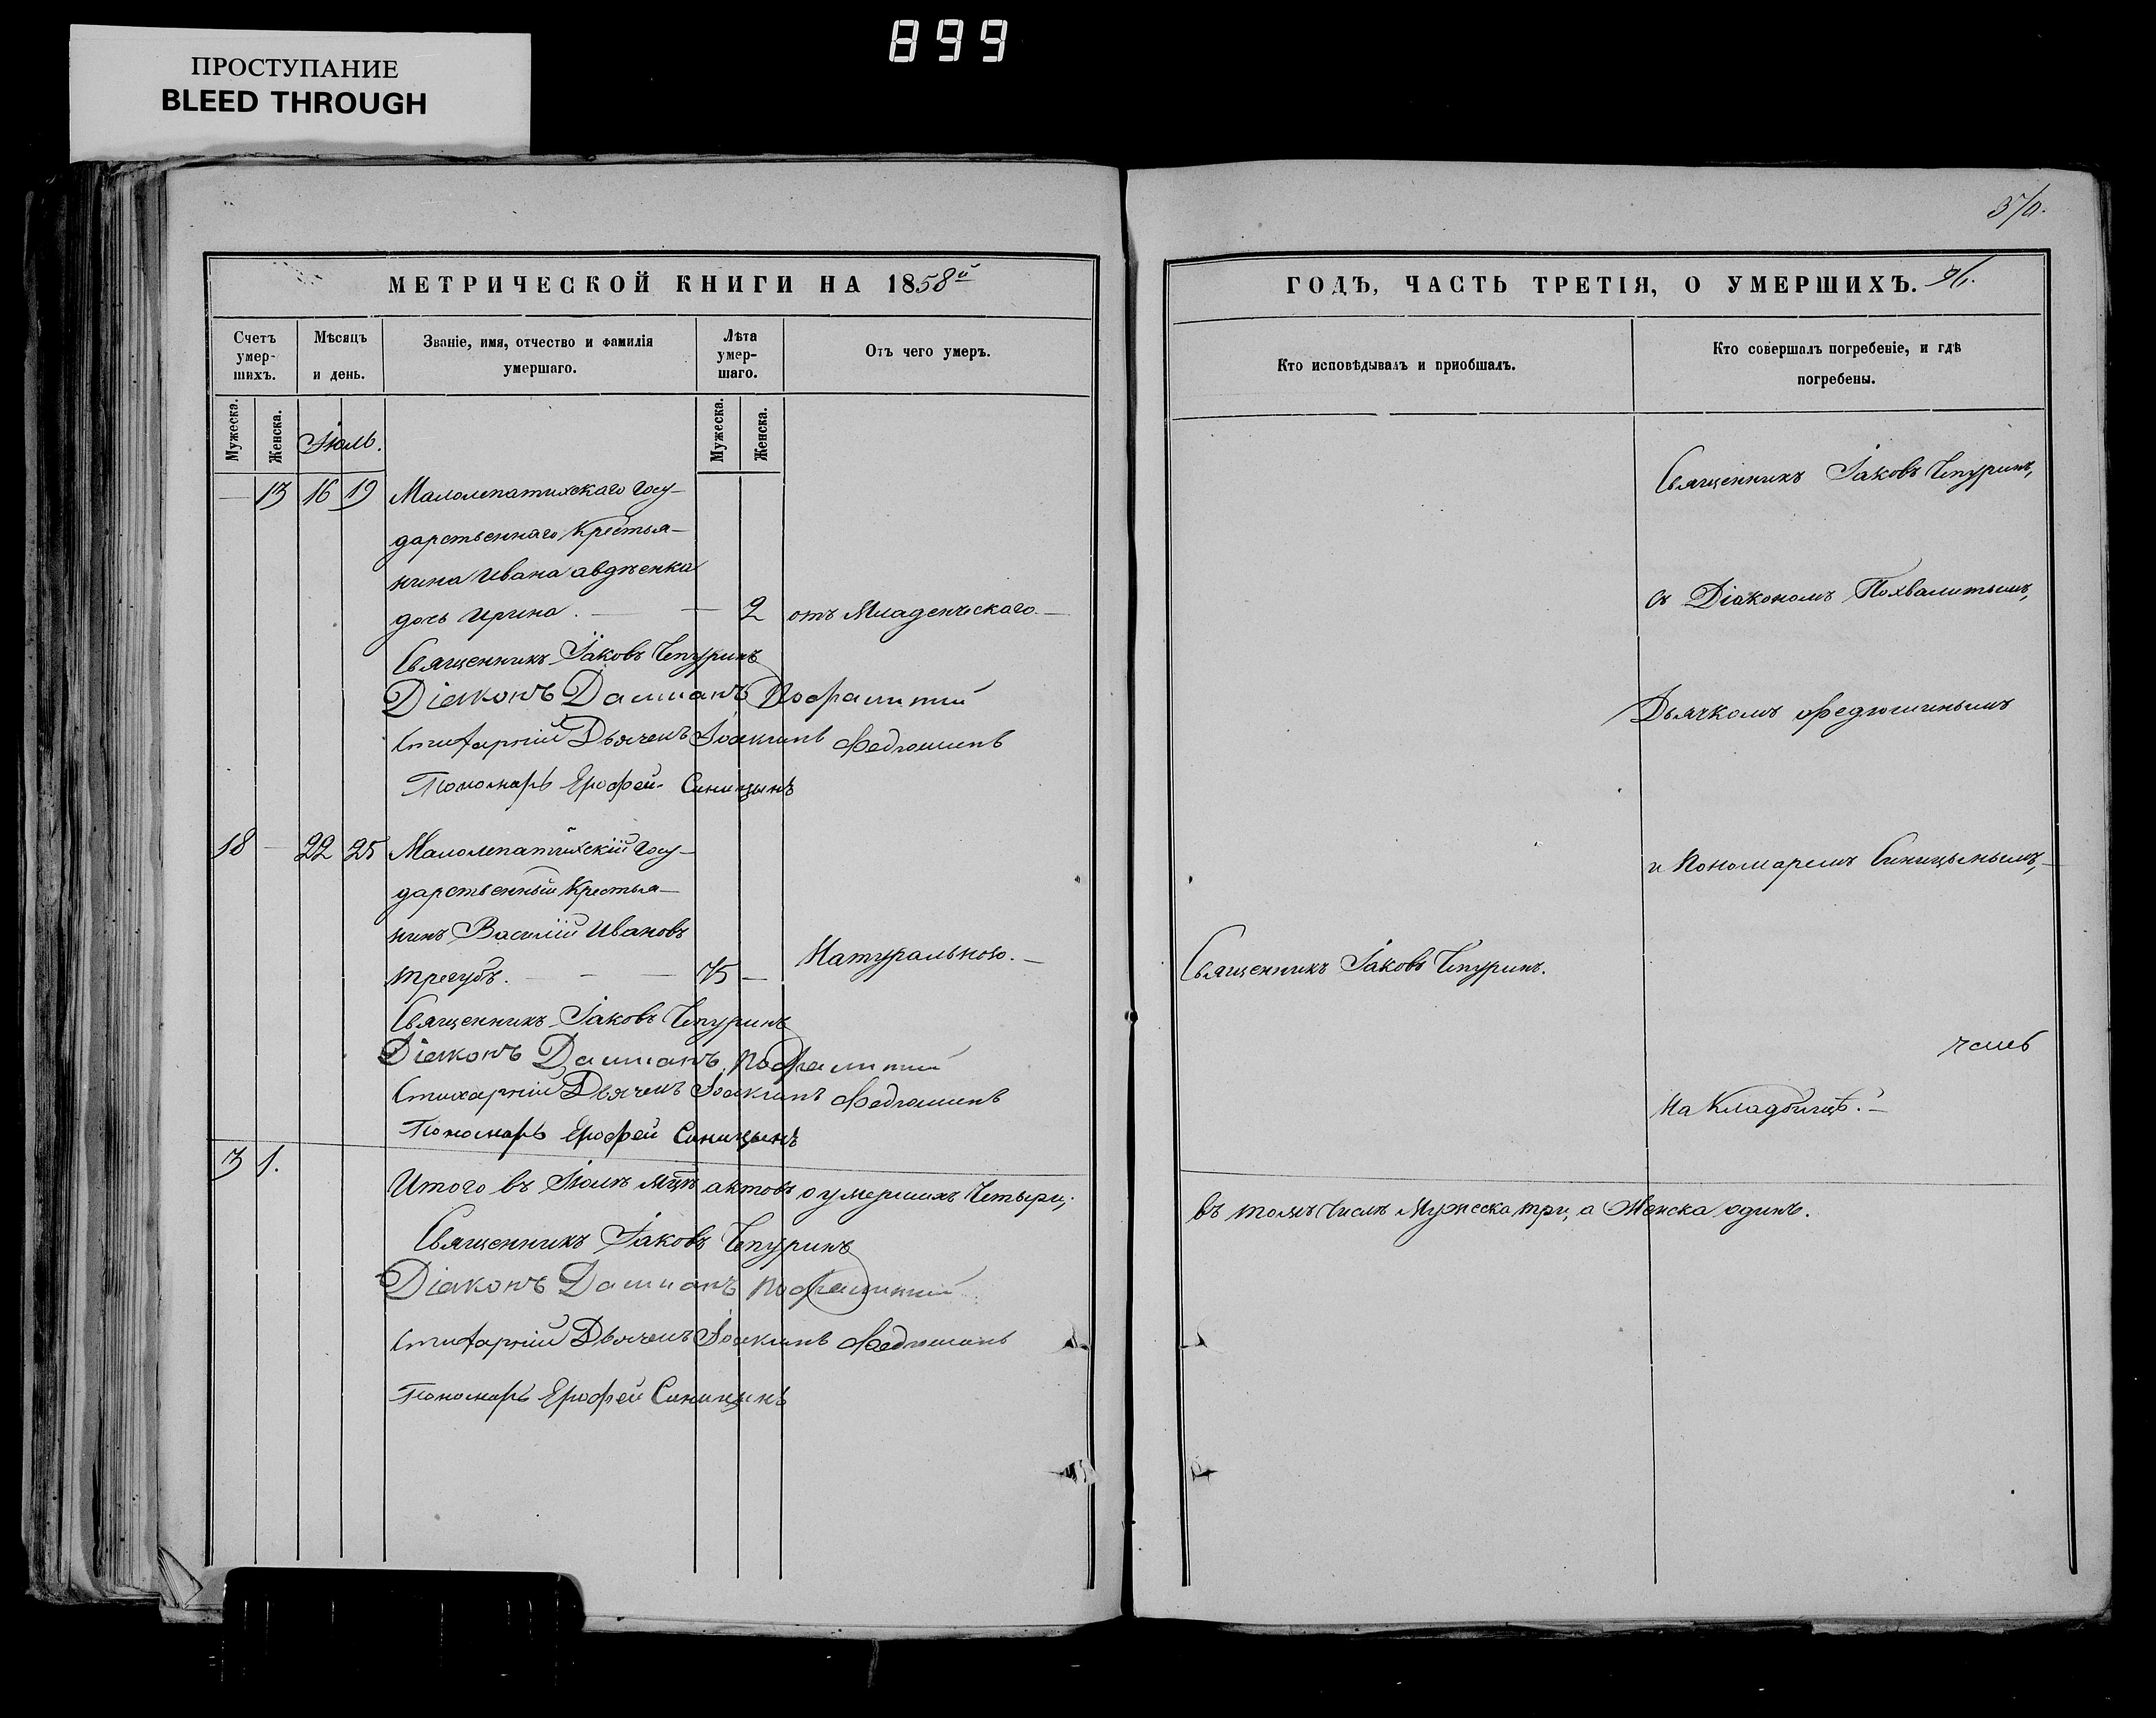 ПРОСТУПАНИЕ
BLEED THROUGH
899
МЕТРИЧЕСКОЙ КНИГИ НА 1858й
Счетъ умер-шихъ.
Мѣсяцъ и день.
Званіе, имя, отчество и фамилія умершаго.
Лѣта умер-шаго.
Отъ чего умеръ.
Мужеска.
Женска.
Іюль.
Мужеска.
Женска.
13 16 19 Малолепатихскаго Госу-
дарственнаго Крестья-
нина Ивана Авдѣенка
дочь Ирина. — — 2 отъ Младенческаго.—
Священникъ Іаковъ Чепуринъ
Діаконъ Даміанъ
Стихарній Дьячекъ Іоакимъ Федюшинъ
Пономарь Ерофей Синицынъ
18 — 22 25 Малолепатихскій Госу-
дарственный Крестья-
нинъ Василій Ивановъ
Трегубъ. — — 75 — Натуральною.—
Священникъ Іаковъ Чепуринъ
Діаконъ Даміанъ
Стихарній Дьячекъ Іоакимъ Федюшинъ
Пономарь Ерофей Синицынъ
3 1.
Итого въ Іюлѣ мцѣ актовъ о умершихъ Четыри,
Священникъ Іаковъ Чепуринъ
Діаконъ Даміанъ
Стихарній Дьячекъ Іоакимъ Федюшинъ
Пономарь Ерофей Синицынъ
ГОДЪ, ЧАСТЬ ТРЕТІЯ, О УМЕРШИХЪ.
Кто исповѣдывалъ и приобшалъ.
Кто совершалъ погребеніе, и гдѣ
погребены.
Священникъ Іаковъ Чепуринъ,
съ Діакономъ Похвалитымъ,
Дьячкомъ Федюшинымъ
и Пономаремъ Синицынымъ,—
Священникъ Іаковъ Чепуринъ.
На Кладбищѣ.—
въ томъ числѣ Мужеска три, а Женска одинъ.